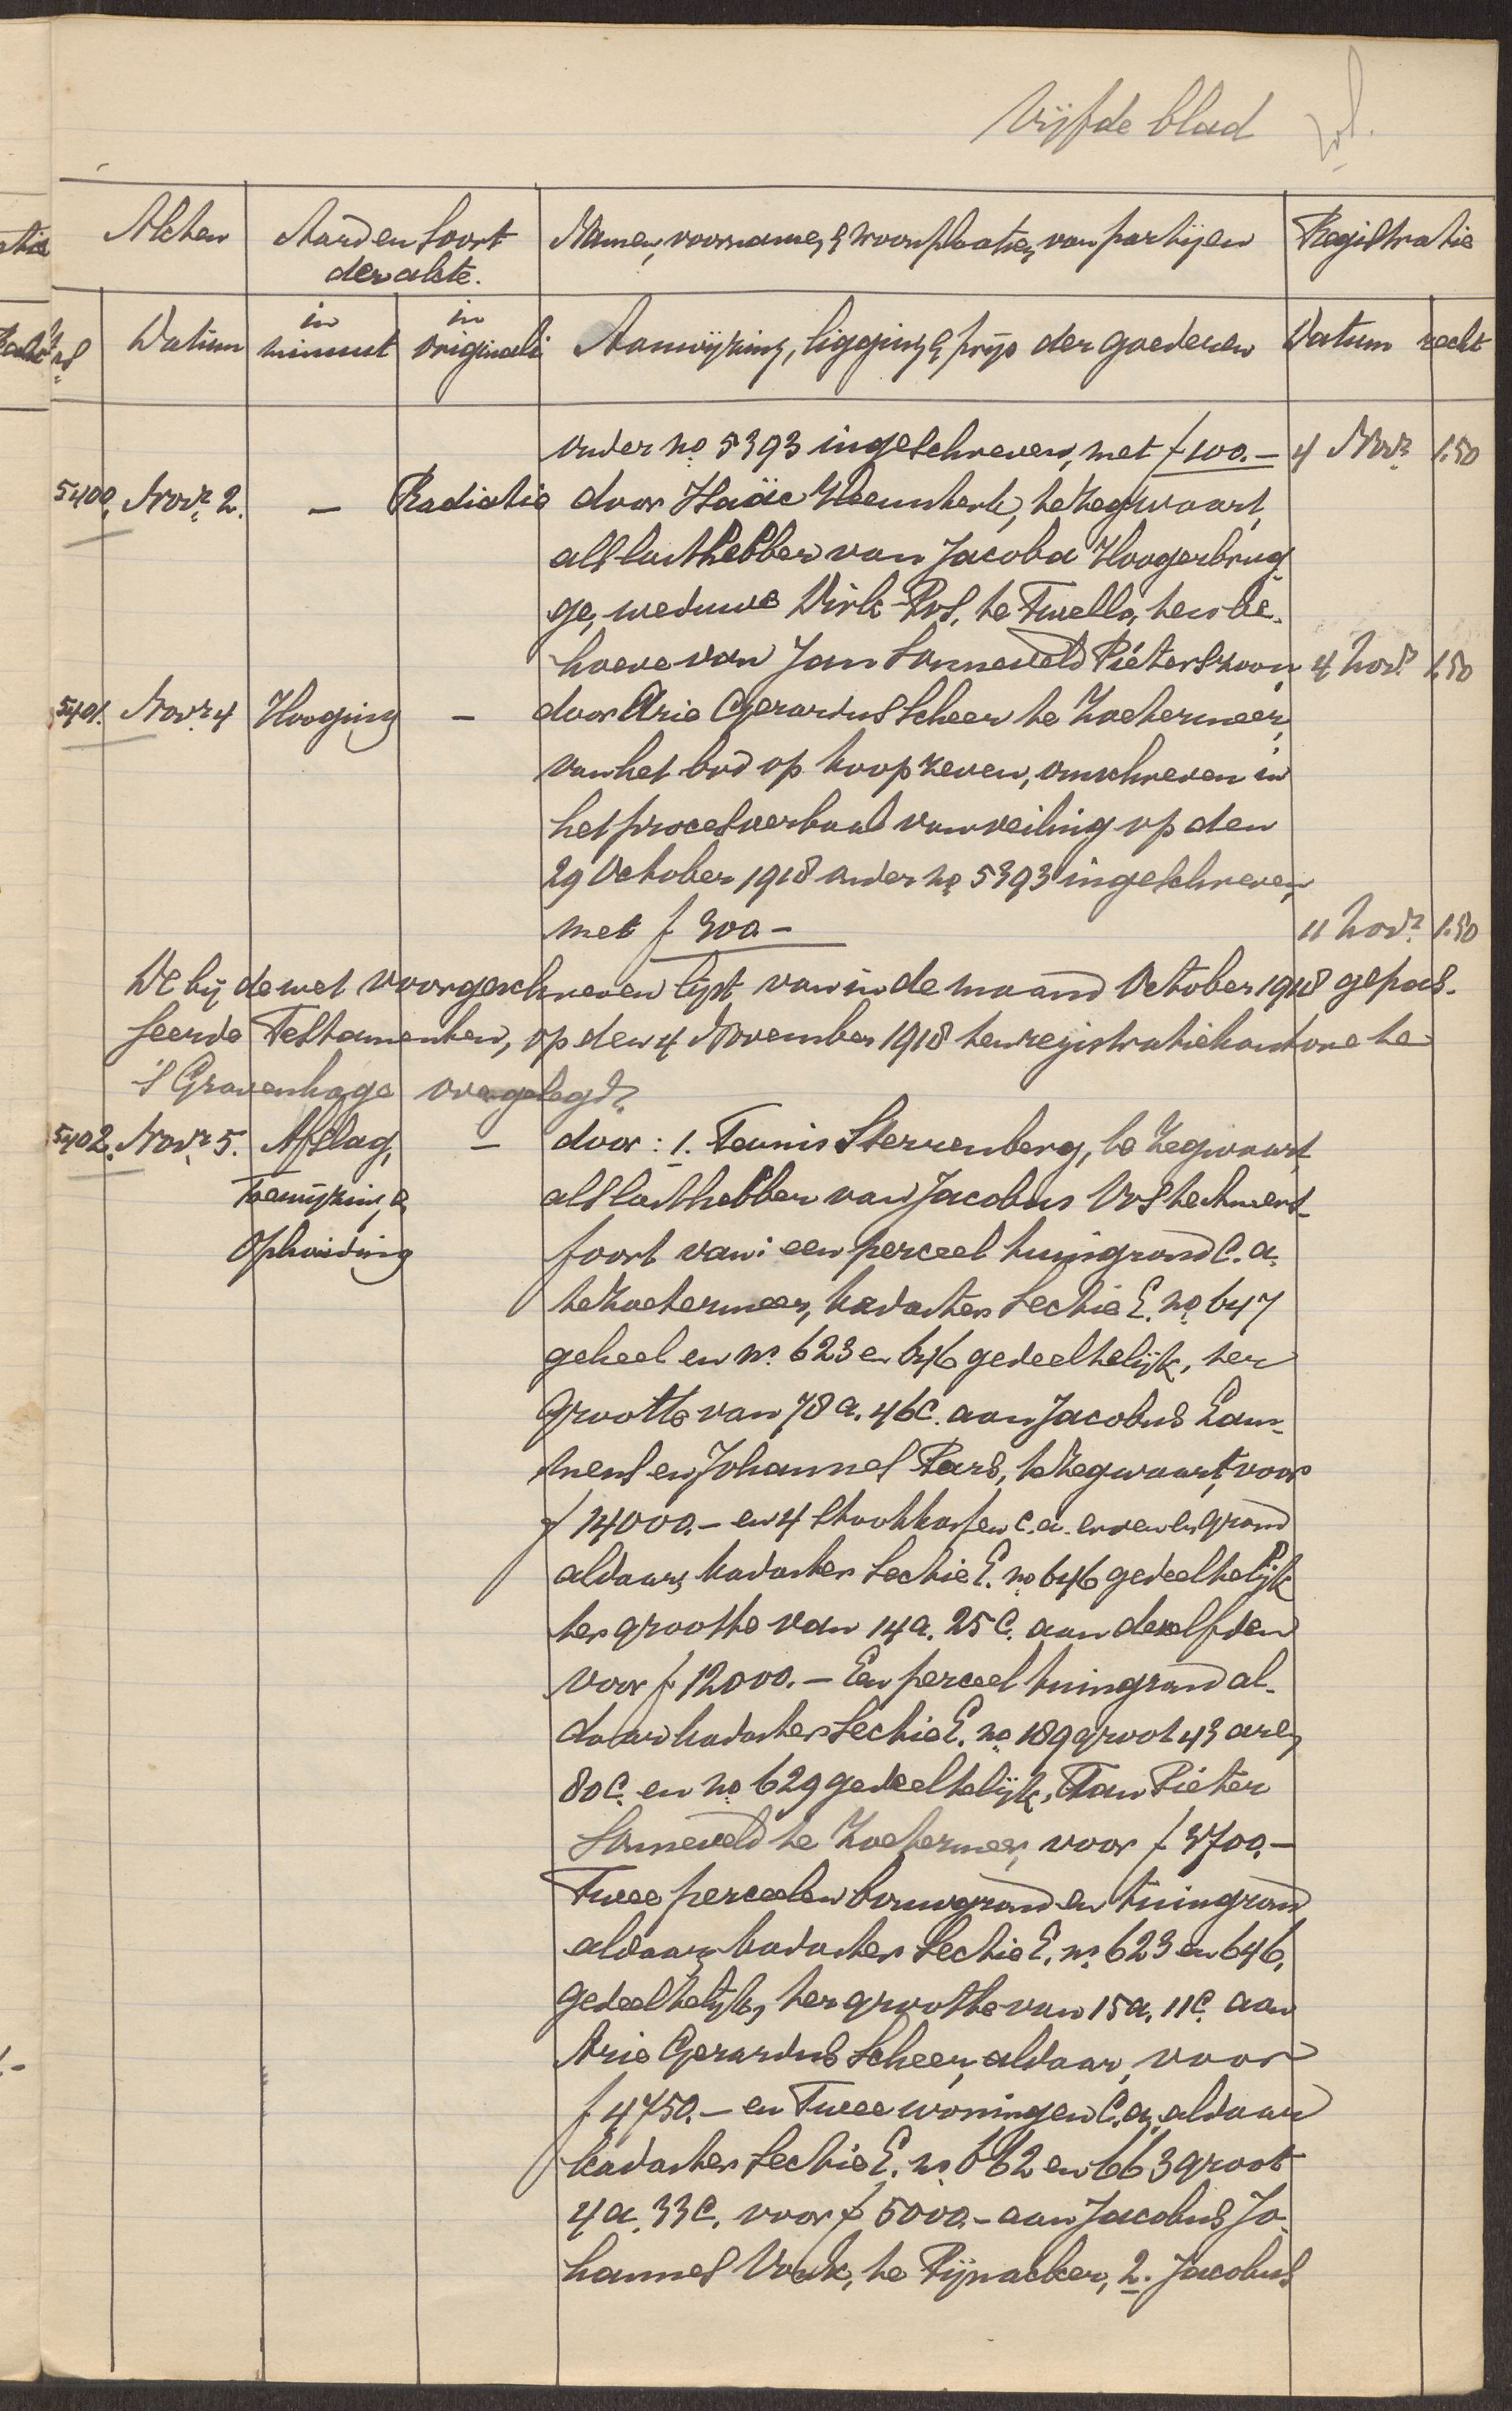 Vijfde blad
Akten Aard en Soort Namen, voornamen, & woonplaatsen van partijen Registratie
der akte.
in in
Datum minuut originali Aanwijzing, ligging & prijs der goederen Datum recht
onder no 5393 ingeschreven, met f 100.- 4 Novr 1.50
5400. Novr 2. - Radiatie door Isaäc Heemskerk, te Zegwaart,
als lasthebber van Jacoba Hoogerbrug-
ge, weduwe Dirk Vos, te Twello, ten be-
hoeve van Jan Sonneveld Pieterszoon 4 Novr 1.50
5401. Novr 4 Hooging - door Arie Gerardus Scheer te Zoetermeer,
van het bod op koop zeven, omschreven in
het procesverbaal van veiling op den
29 October 1918 onder no 5393 ingeschreven,
met f 300.- 11 Novr 1.50
De bij de wet voorgeschreven lijst van in de maand October 1918 gepas-
seerde Testamenten, op den 4 November 1918 ten registratiekantore te
's Gravenhage overgelegd.
5402. Novr 5. Afslag, - door: 1. Teunis Sterrenberg, te Zegwaart,
Toewijzing & als lasthebber van Jacobus Vos te Amers-
Ophouding foort van: een perceel tuingrond c.a.
te Zoetermeer, kadaster Sectie E. no 647
geheel en no 623 en 646 gedeeltelijk, ter
grootte van 78 a. 46 c. aan Jacobus Lam-
mens en Johannes Pars, te Zegwaart, voor
f 14000.- en 4 stookkasten c.a. erven en grond
aldaar, kadaster Sectie E. no 646 gedeeltelijk
ter grootte van 14 a. 25 c. aan dezelfden
voor f 12000.- Een perceel tuingrond al-
daar kadaster Sectie E. no 189 groot 43 aren
80 c. en no 629 gedeeltelijk, aan Pieter
Sonneveld te Zoetermeer, voor f 3700.-
Twee perceelen bouwgrond en tuingrond
aldaar, kadaster Sectie E. no 623 en 646,
gedeeltelijk, ter grootte van 15 a. 11 c. aan
Arie Gerardus Scheer, aldaar, voor
f 4750.- en Twee woningen c.a. aldaar
kadaster Sectie E. no 662 en 663 groot
4 a. 33 c. voor f 5000.- aan Jacobus Jo-
hannes Vonk, te Pijnacker, 2. Jacobus